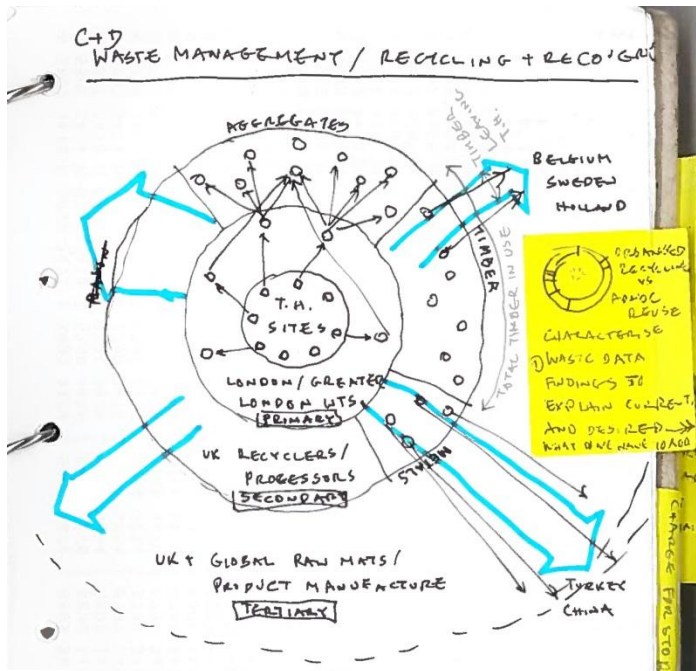 C+D
WASTE MANAGEMENT / RECYCLING + RECOVERY
AGGREGATES
TIMBER
LEAVING
T.H.
BELGIUM
SWEDEN
HOLLAND
TIMBER
TOTAL TIMBER IN USE
T.H.
SITES
LONDON / GREATER
LONDON WTS
PRIMARY
METALS
UK RECYCLERS /
PROCESSORS
SECONDARY
UK + GLOBAL RAW MATS /
PRODUCT MANUFACTURE
TERTIARY
TURKEY
CHINA
ORGANISED
RECYCLING
VS
ADHOC
REUSE
CHARACTERISE
① WASTE DATA
FINDINGS TO
EXPLAIN CURRENT,
AND DESIRED
WHAT DO WE HAVE TO ADD
CHANGE FOR